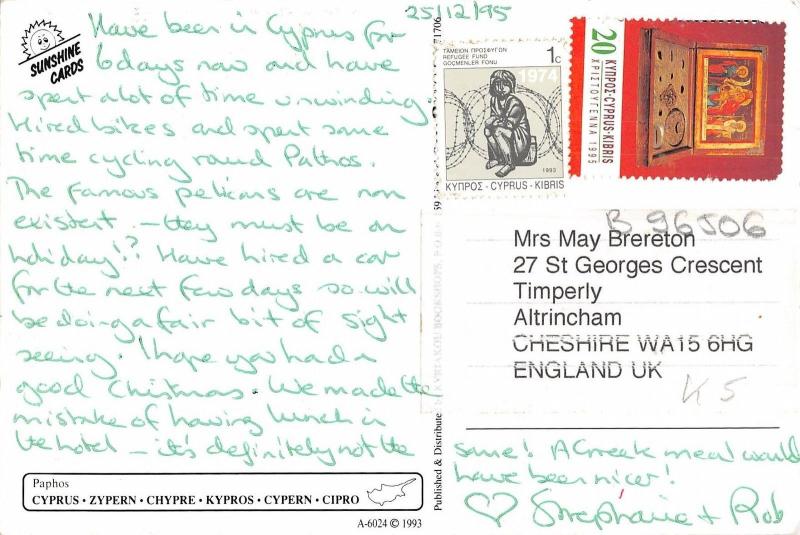 SUNSHINE
CARDS
25/12/95
Have been in Cyprus for
6 days now and have
spent alot of time unwinding.
Hired bikes and spent some
time cycling round Pathos.
The famous pelicans are non
existent - they must be on
holiday!? Have hired a car
for the next few days so will
be doing a fair bit of sight
seeing. I hope you had a
good Christmas. We made the
mistake of having lunch in
the hotel - it's definitely not the
same! A Greek meal would
have been nicer!
♡ Stephanie + Rob
Paphos
CYPRUS · ZYPERN · CHYPRE · KYPROS · CYPERN · CIPRO
A-6024 © 1993
Published & Distribute
1706
ΤΑΜΕΙΟΝ ΠΡΟΣΦΥΓΩΝ
REFUGEE FUND
GÖÇMENLER FONU
1c
1974
1993
ΚΥΠΡΟΣ - CYPRUS - KIBRIS
20
ΚΥΠΡΟΣ-CYPRUS-KIBRIS
ΧΡΙΣΤΟΥΓΕΝΝΑ 1995
B 96506
Mrs May Brereton
27 St Georges Crescent
Timperly
Altrincham
CHESHIRE WA15 6HG
ENGLAND UK
K5